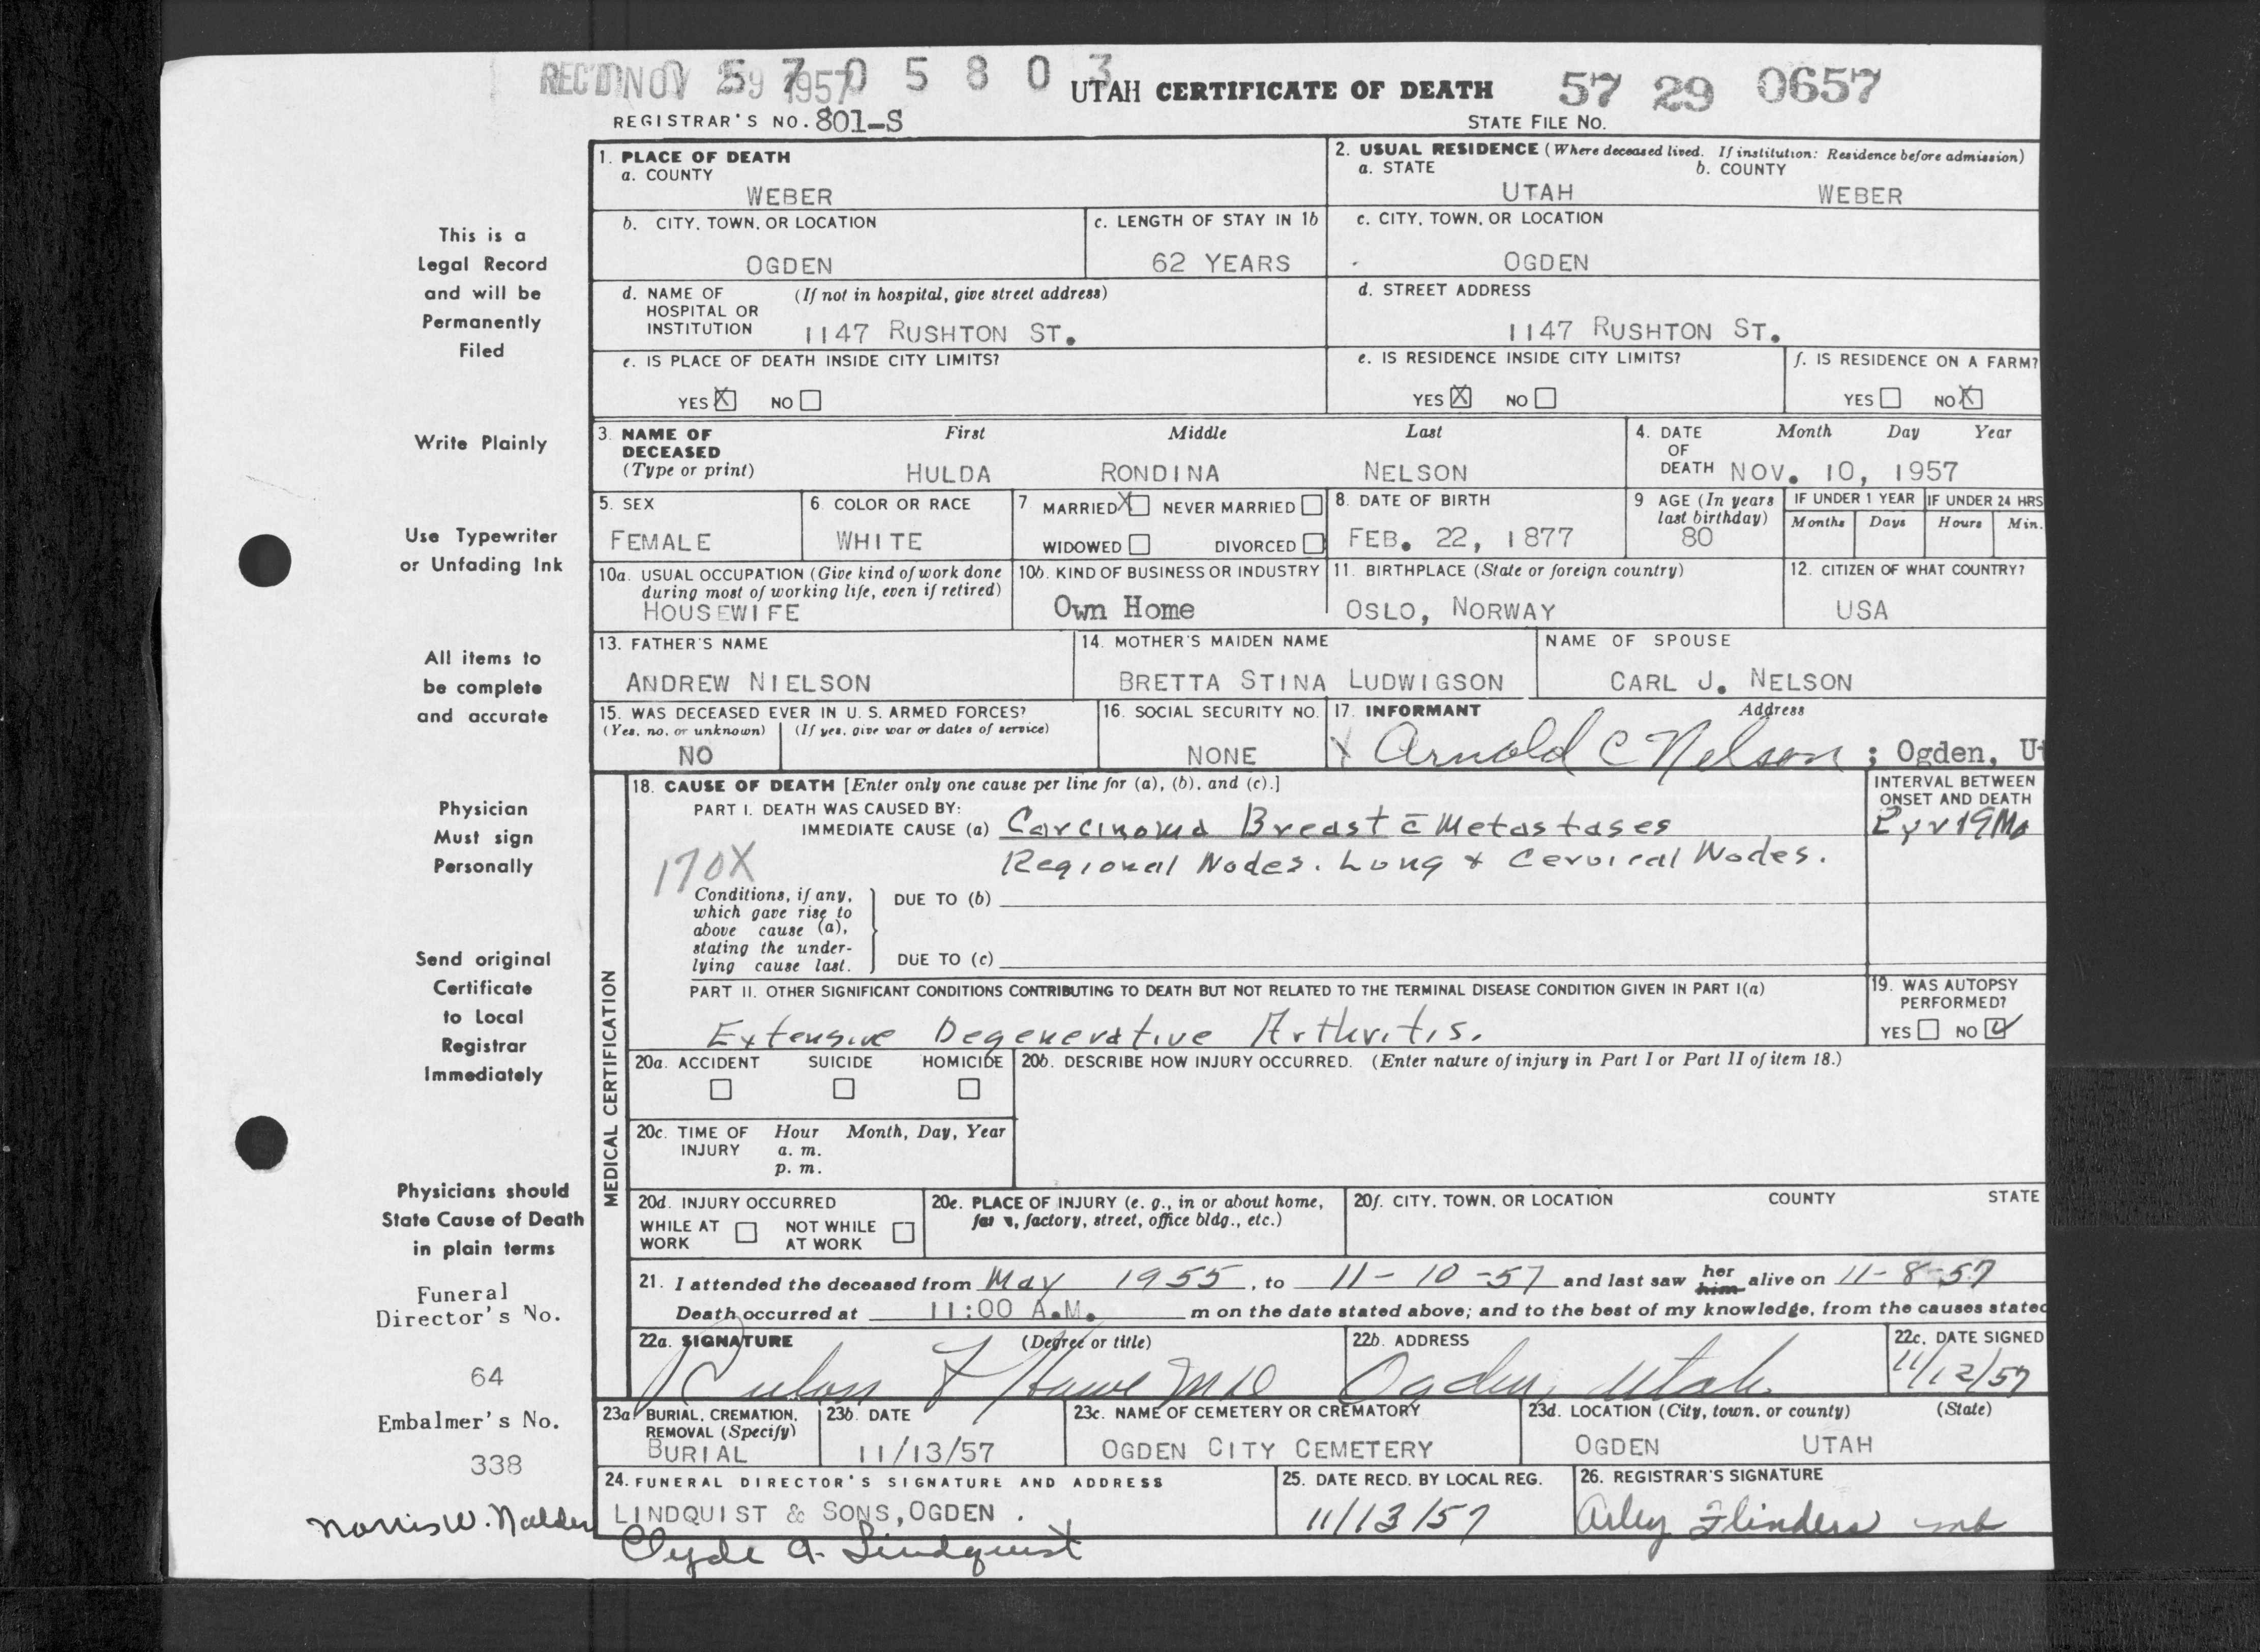 REC'D NOV 29 1957
5 7 0 5 8 0 3
UTAH CERTIFICATE OF DEATH
57 29 0657
REGISTRAR'S NO. 801-S
STATE FILE NO.
1. PLACE OF DEATH
a. COUNTY
WEBER
2. USUAL RESIDENCE (Where deceased lived. If institution: Residence before admission)
a. STATE b. COUNTY
UTAH WEBER
b. CITY, TOWN, OR LOCATION
OGDEN
c. LENGTH OF STAY IN 1b
62 YEARS
c. CITY, TOWN, OR LOCATION
OGDEN
d. NAME OF (If not in hospital, give street address)
HOSPITAL OR
INSTITUTION 1147 RUSHTON ST.
d. STREET ADDRESS
1147 RUSHTON ST.
e. IS PLACE OF DEATH INSIDE CITY LIMITS?
YES X NO
e. IS RESIDENCE INSIDE CITY LIMITS?
YES X NO
f. IS RESIDENCE ON A FARM?
YES NO X
3. NAME OF First Middle Last
DECEASED
(Type or print) HULDA RONDINA NELSON
4. DATE Month Day Year
OF
DEATH NOV. 10, 1957
5. SEX
FEMALE
6. COLOR OR RACE
WHITE
7 MARRIED X NEVER MARRIED
WIDOWED DIVORCED
8. DATE OF BIRTH
FEB. 22, 1877
9 AGE (In years
last birthday)
80
IF UNDER 1 YEAR IF UNDER 24 HRS
Months Days Hours Min.
10a. USUAL OCCUPATION (Give kind of work done
during most of working life, even if retired)
HOUSEWIFE
10b. KIND OF BUSINESS OR INDUSTRY
Own Home
11. BIRTHPLACE (State or foreign country)
OSLO, NORWAY
12. CITIZEN OF WHAT COUNTRY?
USA
13. FATHER'S NAME
ANDREW NIELSON
14. MOTHER'S MAIDEN NAME
BRETTA STINA LUDWIGSON
NAME OF SPOUSE
CARL J. NELSON
15. WAS DECEASED EVER IN U. S. ARMED FORCES?
(Yes, no, or unknown) (If yes, give war or dates of service)
NO
16. SOCIAL SECURITY NO.
NONE
17. INFORMANT Address
X Arnold C Nelson ; Ogden, Ut
MEDICAL CERTIFICATION
18. CAUSE OF DEATH [Enter only one cause per line for (a), (b), and (c).]
PART I. DEATH WAS CAUSED BY:
IMMEDIATE CAUSE (a) Carcinoma Breast c̄ Metastases
Regional Nodes. Lung & Cervical Nodes.
INTERVAL BETWEEN
ONSET AND DEATH
2 yr 19 Mo
170X
Conditions, if any,
which gave rise to
above cause (a),
stating the under-
lying cause last.
DUE TO (b)
DUE TO (c)
PART II. OTHER SIGNIFICANT CONDITIONS CONTRIBUTING TO DEATH BUT NOT RELATED TO THE TERMINAL DISEASE CONDITION GIVEN IN PART I(a)
Extensive Degenerative Arthritis.
19. WAS AUTOPSY
PERFORMED?
YES NO ✓
20a. ACCIDENT SUICIDE HOMICIDE
20b. DESCRIBE HOW INJURY OCCURRED. (Enter nature of injury in Part I or Part II of item 18.)
20c. TIME OF Hour Month, Day, Year
INJURY a. m.
p. m.
20d. INJURY OCCURRED
WHILE AT NOT WHILE
WORK AT WORK
20e. PLACE OF INJURY (e. g., in or about home,
farm, factory, street, office bldg., etc.)
20f. CITY, TOWN, OR LOCATION COUNTY STATE
21. I attended the deceased from May 1955, to 11-10-57 and last saw her him alive on 11-8-57
Death occurred at 11:00 A.M. m on the date stated above; and to the best of my knowledge, from the causes stated
22a. SIGNATURE (Degree or title)
Rulon F Howe MD
22b. ADDRESS
Ogden, Utah.
22c. DATE SIGNED
11/12/57
23a. BURIAL, CREMATION,
REMOVAL (Specify)
BURIAL
23b. DATE
11/13/57
23c. NAME OF CEMETERY OR CREMATORY
OGDEN CITY CEMETERY
23d. LOCATION (City, town, or county) (State)
OGDEN UTAH
24. FUNERAL DIRECTOR'S SIGNATURE AND ADDRESS
LINDQUIST & SONS, OGDEN .
Clyde A. Lindquist
25. DATE RECD. BY LOCAL REG.
11/13/57
26. REGISTRAR'S SIGNATURE
Arley Flinders mb
This is a
Legal Record
and will be
Permanently
Filed
Write Plainly
Use Typewriter
or Unfading Ink
All items to
be complete
and accurate
Physician
Must sign
Personally
Send original
Certificate
to Local
Registrar
Immediately
Physicians should
State Cause of Death
in plain terms
Funeral
Director's No.
64
Embalmer's No.
338
Norris W. Nalder